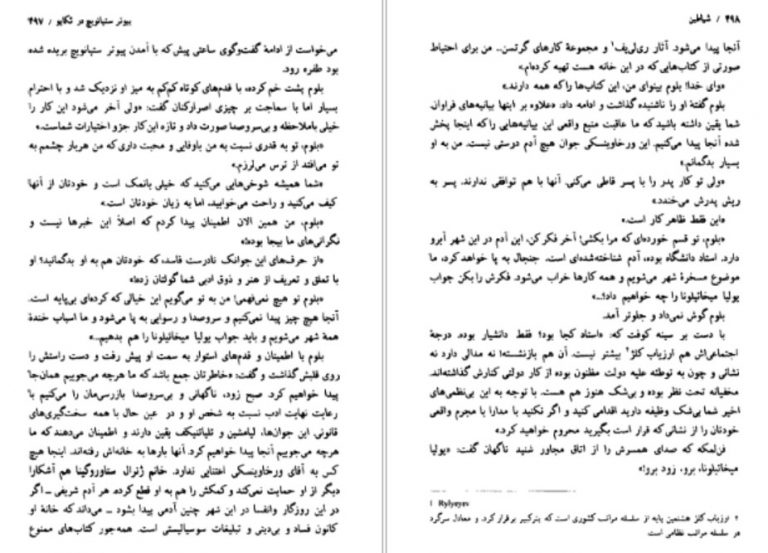 پیوتر ستپانویچ در تکاپو / ۴۹۷
می‌خواست از ادامهٔ گفت‌وگوی ساعتی پیش که با آمدن پیوتر ستپانویچ بریده شده
بود طفره رود.
بلوم پشت خم کرده، با قدم‌های کوتاه کم‌کم به میز او نزدیک شد و با احترام
بسیار اما با سماجت بر چیزی اصرارکنان گفت: «ولی آخر می‌شود این کار را
خیلی باملاحظه و بی‌سروصدا صورت داد و تازه این کار جزو اختیارات شماست.»
«بلوم، تو به قدری نسبت به من باوفایی و محبت داری که من هربار چشمم به
تو می‌افتد از ترس می‌لرزم.»
«شما همیشه شوخی‌هایی می‌کنید که خیلی بانمک است و خودتان از آنها
کیف می‌کنید و راحت می‌خوابید، اما به زیان خودتان است.»
«بلوم، من همین الان اطمینان پیدا کردم که اصلاً این خبرها نیست و
نگرانی‌های ما بیجا بوده!»
«از حرف‌های این جوانک نادرست فاسد، که خودتان هم به او بدگمانید؟ او
با تملق و تعریف از هنر و ذوق ادبی شما گولتان زده!»
«بلوم تو هیچ نمی‌فهمی! من به تو می‌گویم این خیالی که کرده‌ای بی‌پایه است.
آنجا هیچ چیز پیدا نمی‌کنیم و سروصدا و رسوایی به پا می‌شود و ما اسباب خندهٔ
همهٔ شهر می‌شویم و باید جواب یولیا میخائیلونا را هم بدهیم...»
بلوم با اطمینان و قدم‌های استوار به سمت او پیش رفت و دست راستش را
روی قلبش گذاشت و گفت: «خاطرتان جمع باشد که ما هرچه می‌جوییم همان‌جا
پیدا خواهیم کرد. صبح زود، ناگهانی و بی‌سروصدا بازرسی‌مان را می‌کنیم با
رعایت نهایت ادب نسبت به شخص او و در عین حال با همه سخت‌گیری‌های
قانونی. این جوان‌ها، لیامشین و تلیاتنیکف یقین دارند و اطمینان می‌دهند که ما
هرچه می‌جوییم آنجا پیدا خواهیم کرد. آنها بارها به خانه‌اش رفته‌اند. اینجا هیچ
کس به آقای ورخاوینسکی اعتنایی ندارد. خانم ژنرال ستاوروگینا هم آشکارا
دیگر از او حمایت نمی‌کند و کمکش را هم به او قطع کرده. هر آدم شریفی ــ اگر
در این روزگار وانفسا در این شهر چنین آدمی پیدا بشود ــ می‌داند که خانهٔ او
کانون فساد و بی‌دینی و تبلیغات سوسیالیستی است. همه‌جور کتاب‌های ممنوع
۴۹۸ / شیاطین
آنجا پیدا می‌شود. آثار ری‌لی‌یف۱ و مجموعهٔ کارهای گرتسن.. من برای احتیاط
صورتی از کتاب‌هایی که در این خانه هست تهیه کرده‌ام.»
«وای خدا! بلوم بینوای من، این کتاب‌ها را که همه دارند.»
بلوم گفتهٔ او را ناشنیده گذاشت و ادامه داد: «علاوه بر اینها بیانیه‌های فراوان.
شما یقین داشته باشید که ما عاقبت منبع واقعی این بیانیه‌هایی را که اینجا پخش
شده آنجا پیدا می‌کنیم. این ورخاوینسکی جوان هیچ آدم درستی نیست. من به او
بسیار بدگمانم.»
«ولی تو کار پدر را با پسر قاطی می‌کنی. آنها با هم توافقی ندارند. پسر به
ریش پدرش می‌خندد.»
«این فقط ظاهر کار است.»
«بلوم، تو قسم خورده‌ای که مرا بکشی! آخر فکر کن، این آدم در این شهر آبرو
دارد. استاد دانشگاه بوده، آدم شناخته‌شده‌ای است. جنجال به پا خواهد کرد، ما
موضوع مسخرهٔ شهر می‌شویم و همه کارها خراب می‌شود. فکرش را بکن جواب
یولیا میخائیلونا را چه خواهیم داد؟...»
بلوم گوش نمی‌داد و جلوتر آمد.
با دست بر سینه کوفت که: «استاد کجا بود؟ فقط دانشیار بوده. درجهٔ
اجتماعی‌اش هم ارزیاب کلژ۲ بیشتر نیست. آن هم بازنشسته! نه مدالی دارد نه
نشانی و چون به توطئه علیه دولت مظنون بوده از کار دولتی کنارش گذاشته‌اند.
مخفیانه تحت نظر بوده و بی‌شک هنوز هم هست. با توجه به این بی‌نظمی‌های
اخیر شما بی‌شک وظیفه دارید اقدامی کنید و اگر نکنید با مدارا با مجرم واقعی
خودتان را از نشانی که قرار است بگیرید محروم خواهید کرد.»
فن‌لمکه که صدای همسرش را از اتاق مجاور شنید ناگهان گفت: «یولیا
میخائیلونا، برو، زود برو!»
1 Rylyeyev
۲ ارزیاب کلژ هشتمین پایه از سلسله مراتب کشوری است که پترکبیر برقرار کرد. و معادل سرگرد
در سلسله مراتب نظامی است